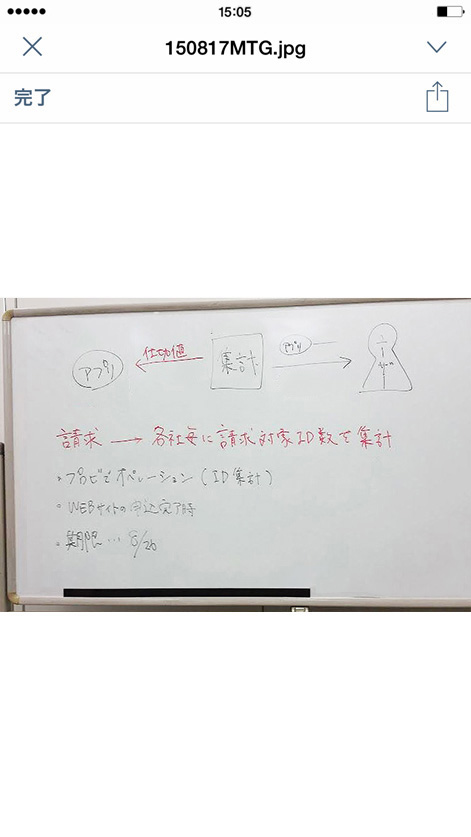 15:05
150817MTG.jpg
完了
アプリ
集計
アプリ
請求 → 各社毎に請求対象ID数を集計
オペレーション（ID集計）
WEBサイトの申込完了時
期限… 8/20